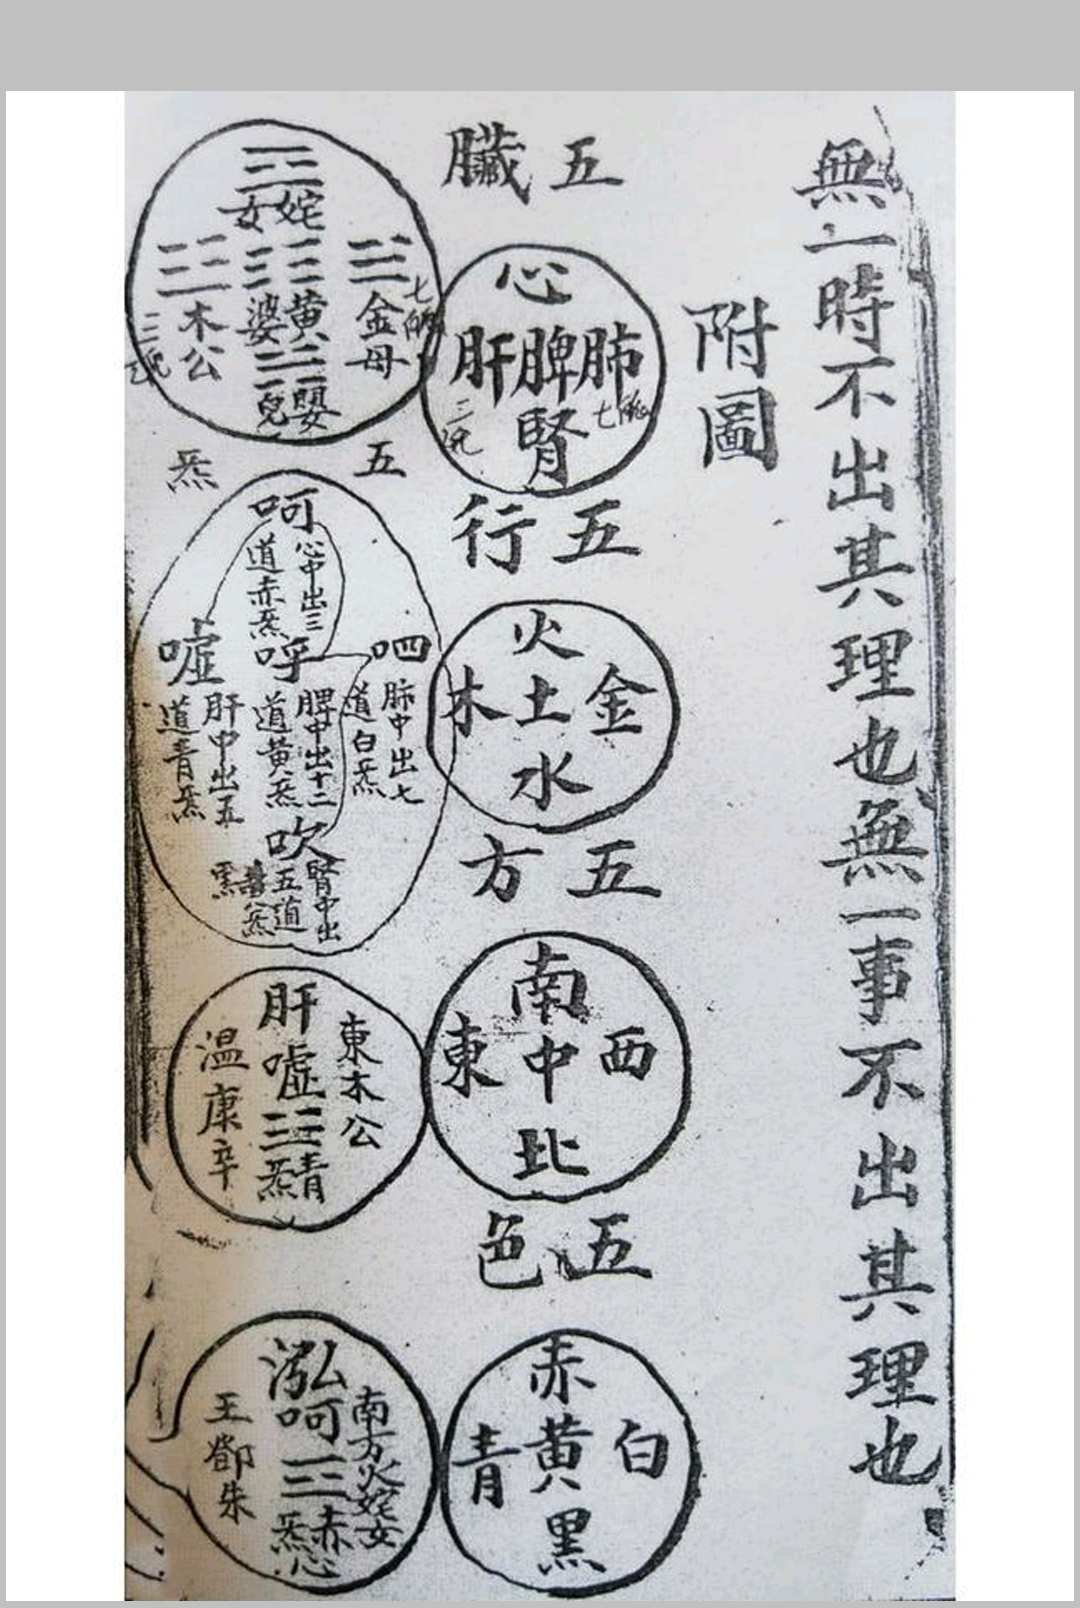 無一時不出其理也無一事不出其理也
附圖
五臟
心
肝脾肺
腎
五行
火
木土金
水
五方
南
東中西
北
五色
赤
青黃白
黑
姹女
金母
黃婆
木公
嬰兒
五炁
呵
心中出三
道赤炁
呬
肺中出七
道白炁
呼
脾中出十二
道黃炁
噓
肝中出五
道青炁
吹
腎中出
五道
黑
炁
東木公
肝噓
青炁
溫康辛
南方火姹女
泓呵
赤炁
心
王鄧朱